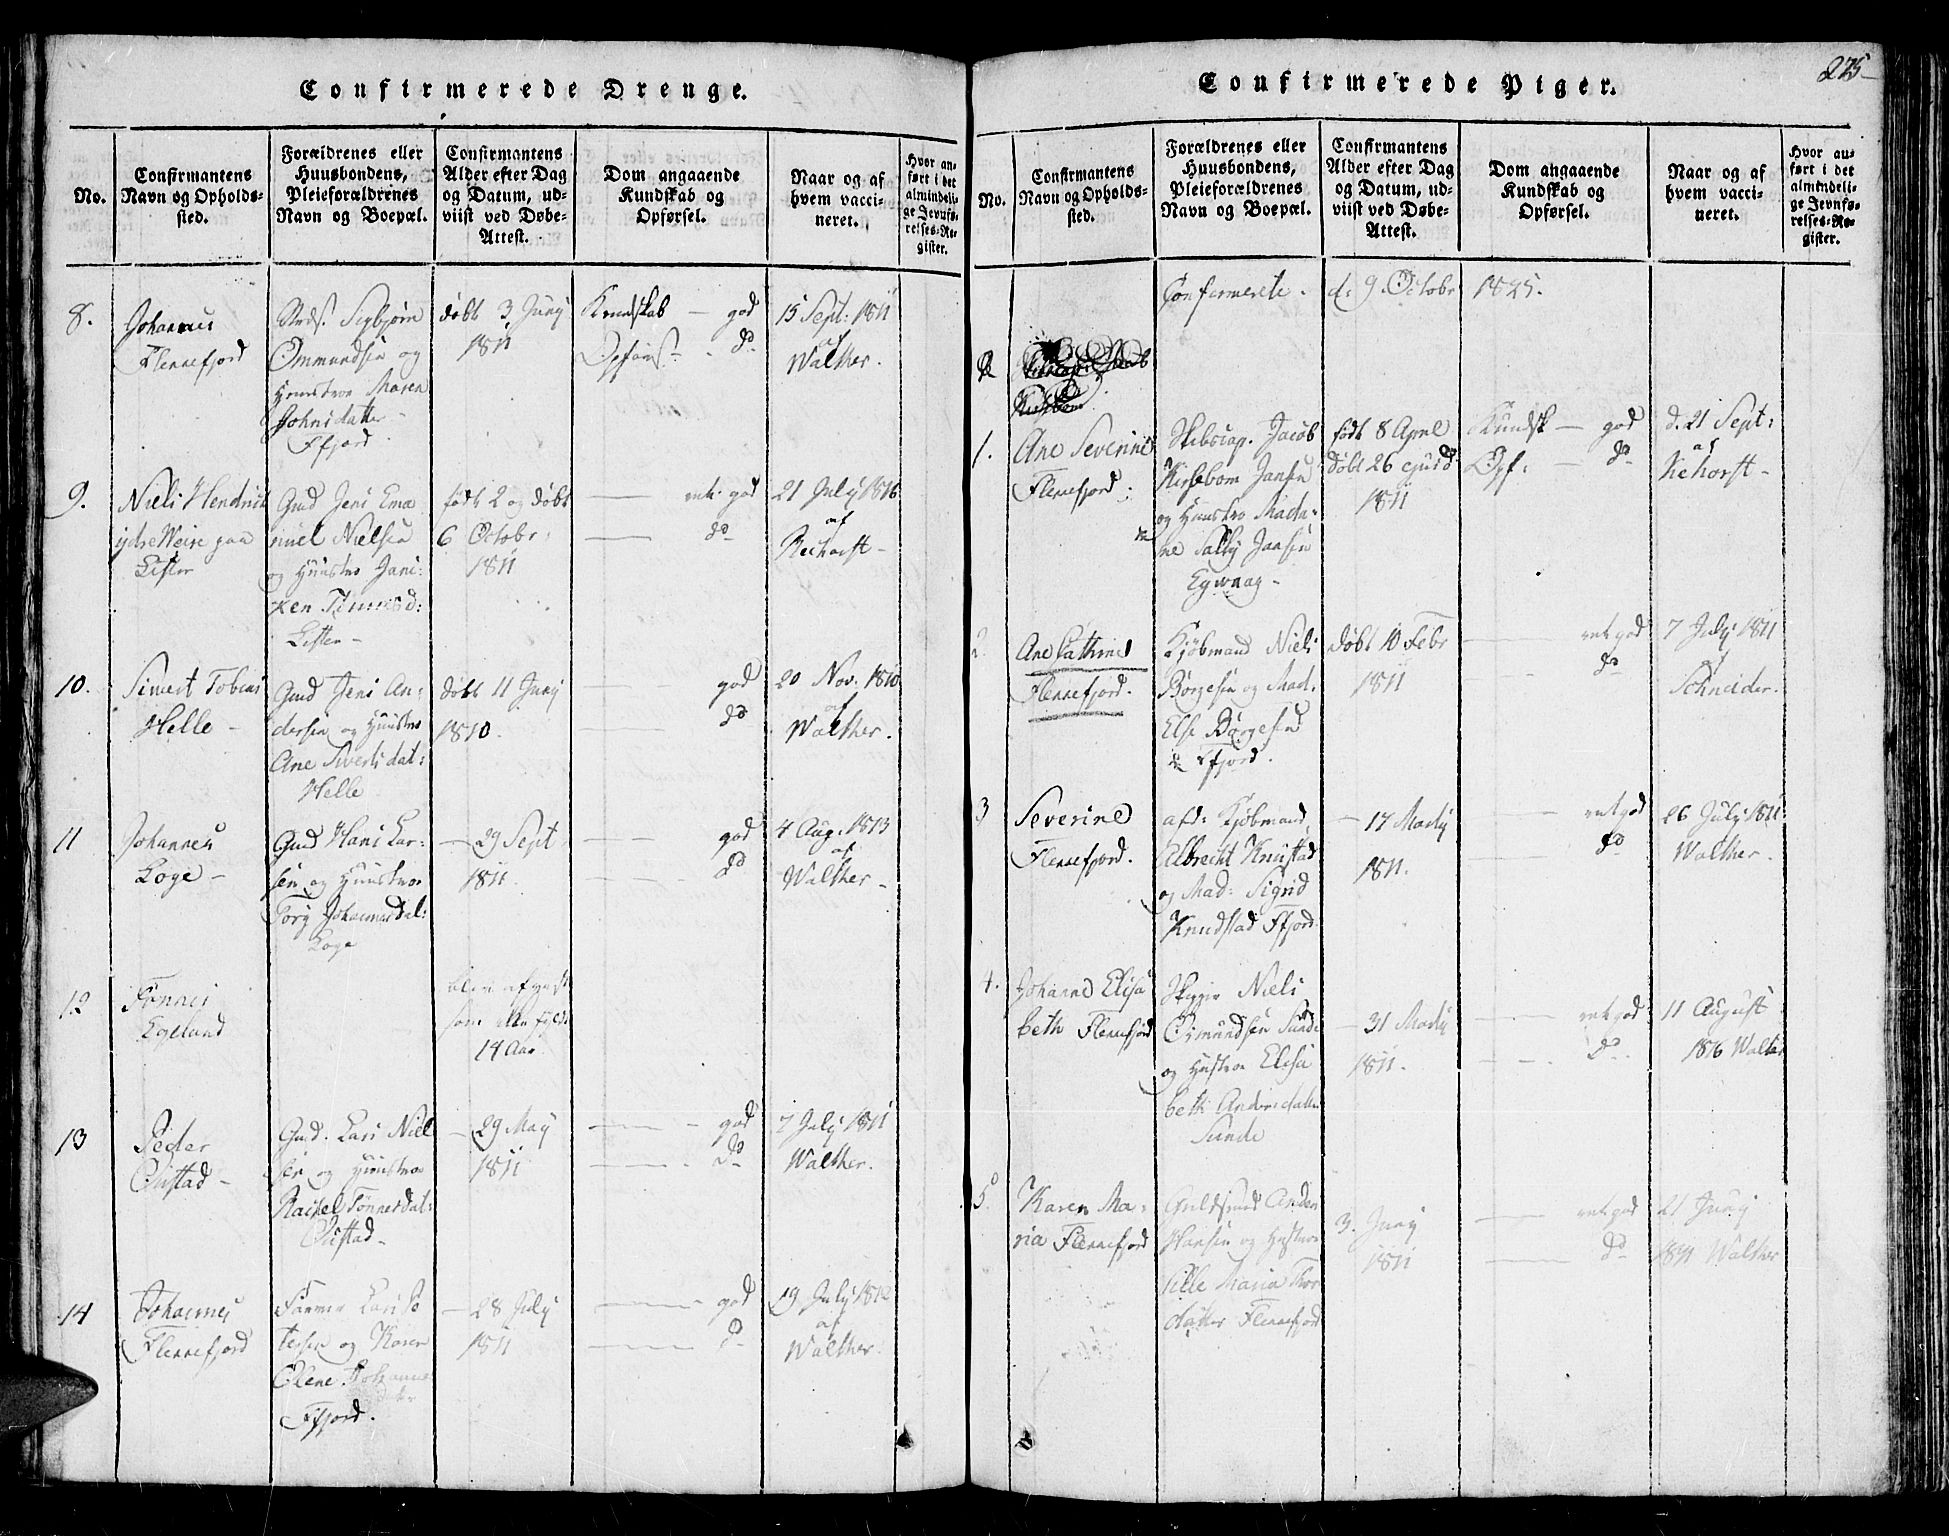 Confirmerede Drenge.
No.
Confirmantens
Navn og Opholds-
sted.
Forældrenes eller
Huusbondens,
Pleieforældrenes
Navn og Boepæl.
Confirmantens
Alder efter Dag
og Datum, ud-
viist ved Døbe-
Attest.
Dom angaaende
Kundskab og
Opførsel.
Naar og af
hvem vacci-
neret.
Hvor an-
ført i det
almindeli-
ge Jevnfø-
relses-Re-
gister.
8.
Johannes
Flekkefjord
Sigbjørn
Ommundsen og
Hunstroe Maren
Johnsdatter
Ffjord
døbt 3 Junij
1811
Kundskab — god
Opførs — do
15 Sept: 1811
af
Walther.
9.
Niels Hendrik
ydre Weire paa
Lister
Gmd Jens Ema
nuel Nielsen
og Hunstro Jani-
ken Tønnesd:
Lister —
født 2 og døbt
6 Octobr:
1811
— god
— do
21 July 1816
af
Reichorst —
10.
Sivert Tobias
Helle —
Gmd Jens An-
dersen og Hunstroe
Ane Sivertsdat:
Helle
døbt 11 Junij
1810.
— god
do
20 Nov: 1810
af
Walther.
11
Johannes
Loge —
Gmd Hans Lar-
sen og Hunstroe
Tory Johannesdat:
Loge
— 29 Sept
1811.
— god
do
4 Aug: 1813
af
Walther —
12
Tønnes
Egeland
blev
som fyldt
14 Aar
13
Peder
Oustad —
Gmd. Lars Niel
sen og Hunstroe
Rachel Tønnesdat:
Oustad —
— 29 May
1811
— god
do
7 July 1811
Walther.
14
Johannes
Flekkefjord
Lars
og Karen
Olene
Ffjord.
— 28 July
1811
— god
do
19 July 1812
af
Walther.
Confirmerede Piger.
225
No.
Confirmantens
Navn og Opholds-
sted.
Forældrenes eller
Huusbondens,
Pleieforældrenes
Navn og Boepæl.
Confirmantens
Alder efter Dag
og Datum, ud-
viist ved Døbe-
Attest.
Dom angaaende
Kundskab og
Opførsel.
Naar og af
hvem vacci-
neret.
Hvor an-
ført i det
almindeli-
ge Jevnfø-
relses-Re-
gister.
Confirmerete. d: 9 Octobr 1825.
1.
Ane Severine
Flekkefjord
Skibscap. Jacob
Kirsebom Jansen
og Hunstro Mada-
me Jansen
Egvaag —
født 8 April
døbt 26 ejusd
1811
Kundsk — god
Opf: — do
d. 21 Sept:
af
2
Ane Cathrine
Flekkefjord.
Kjøbmand Niels
Børgesen og Mad.
Else Børgesen
Ffjord.
døbt 10 Febr
1811
— god
do
7 July 1811
af
Schneider.
3
Severine
Flekkefjord.
afd: Kjøbmand
Albrecht Knudstad
og Mad: Sigrid
Knudstad Ffjord
— 17 Martij
1811.
— god
do
26 July 1811
Walther.
4.
Johanne Elisa
beth Flekkefjord
Skipper Niels
Osmundsen Sunde
og Hustroe Elisa
beth Andersdatter
Sunde
— 31 Martij
1811.
— god
do
11 August
1816 Walther
5.
Karen Ma-
ria Flekkefjord
Guldsmed Anders
Hansen og Hustroe
Maria
datter Flekkefjord
3. Junij
1811
— god
do
21 Junij
Walther